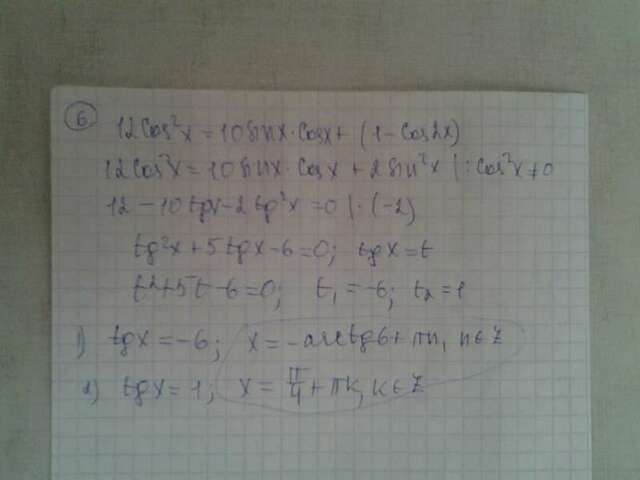 6
12cos²x = 10sinx·cosx + (1 - cos2x)
12cos²x = 10sinx·cosx + 2sin²x |:cos²x≠0
12 - 10tgx - 2tg²x = 0 |·(-2)
tg²x + 5tgx - 6 = 0; tgx = t
t² + 5t - 6 = 0; t₁ = -6; t₂ = 1
1) tgx = -6; x = -arctg6 + πn, n∈Z
2) tgx = 1; x = π/4 + πk, k∈Z